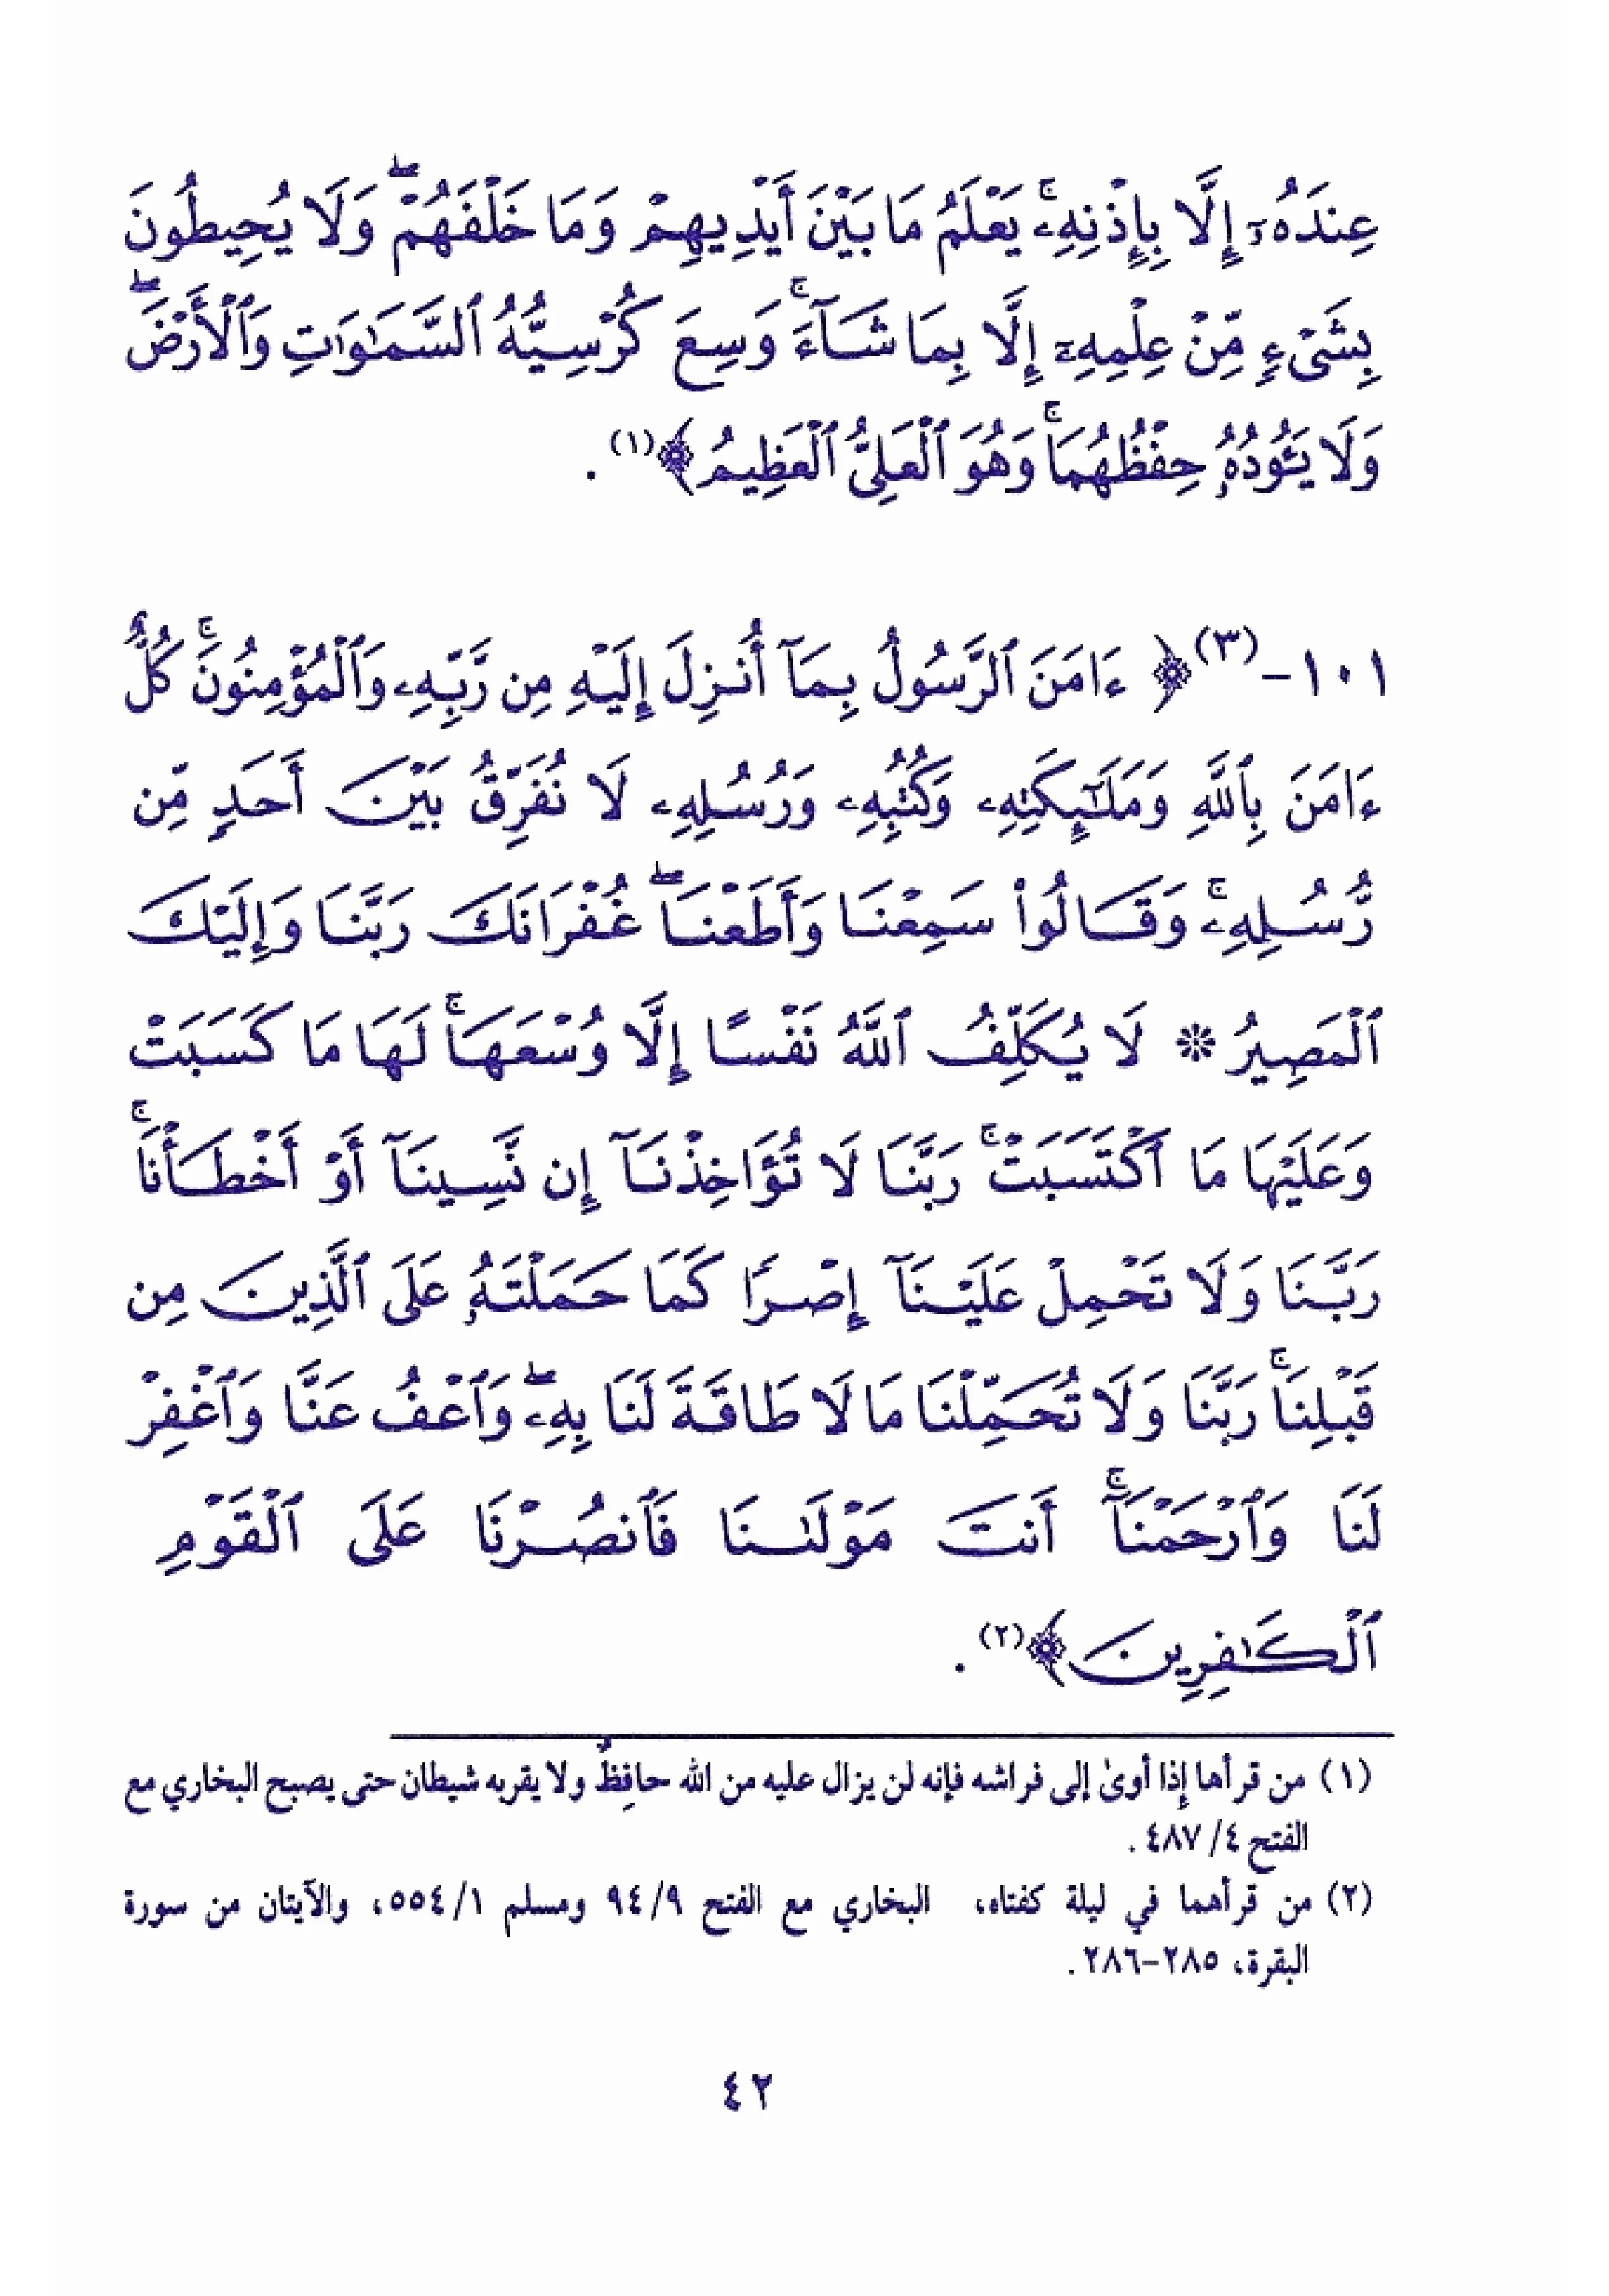 عِندَهُۥٓ إِلَّا بِإِذْنِهِۦۚ يَعْلَمُ مَا بَيْنَ أَيْدِيهِمْ وَمَا خَلْفَهُمْۖ وَلَا يُحِيطُونَ
بِشَىْءٍ مِّنْ عِلْمِهِۦٓ إِلَّا بِمَا شَآءَۚ وَسِعَ كُرْسِيُّهُ ٱلسَّمَٰوَٰتِ وَٱلْأَرْضَۖ
وَلَا يَـُٔودُهُۥ حِفْظُهُمَاۚ وَهُوَ ٱلْعَلِىُّ ٱلْعَظِيمُ﴾(١).
١٠١-(٣) ﴿ءَامَنَ ٱلرَّسُولُ بِمَآ أُنزِلَ إِلَيْهِ مِن رَّبِّهِۦ وَٱلْمُؤْمِنُونَۚ كُلٌّ
ءَامَنَ بِٱللَّهِ وَمَلَٰٓئِكَتِهِۦ وَكُتُبِهِۦ وَرُسُلِهِۦ لَا نُفَرِّقُ بَيْنَ أَحَدٍ مِّن
رُّسُلِهِۦۚ وَقَالُوا۟ سَمِعْنَا وَأَطَعْنَاۖ غُفْرَانَكَ رَبَّنَا وَإِلَيْكَ
ٱلْمَصِيرُ * لَا يُكَلِّفُ ٱللَّهُ نَفْسًا إِلَّا وُسْعَهَاۚ لَهَا مَا كَسَبَتْ
وَعَلَيْهَا مَا ٱكْتَسَبَتْۚ رَبَّنَا لَا تُؤَاخِذْنَآ إِن نَّسِينَآ أَوْ أَخْطَأْنَاۚ
رَبَّنَا وَلَا تَحْمِلْ عَلَيْنَآ إِصْرًا كَمَا حَمَلْتَهُۥ عَلَى ٱلَّذِينَ مِن
قَبْلِنَاۚ رَبَّنَا وَلَا تُحَمِّلْنَا مَا لَا طَاقَةَ لَنَا بِهِۦۖ وَٱعْفُ عَنَّا وَٱغْفِرْ
لَنَا وَٱرْحَمْنَآۚ أَنتَ مَوْلَىٰنَا فَٱنصُرْنَا عَلَى ٱلْقَوْمِ
ٱلْكَٰفِرِينَ﴾(٢).
(١) من قرأها إذا أوىٰ إلى فراشه فإنه لن يزال عليه من الله حافِظٌ ولا يقربه شيطان حتى يصبح البخاري مع
الفتح ٤/ ٤٨٧.
(٢) من قرأهما في ليلة كفتاه، البخاري مع الفتح ٩/ ٩٤ ومسلم ١/ ٥٥٤، والآيتان من سورة
البقرة، ٢٨٥-٢٨٦.
٤٢